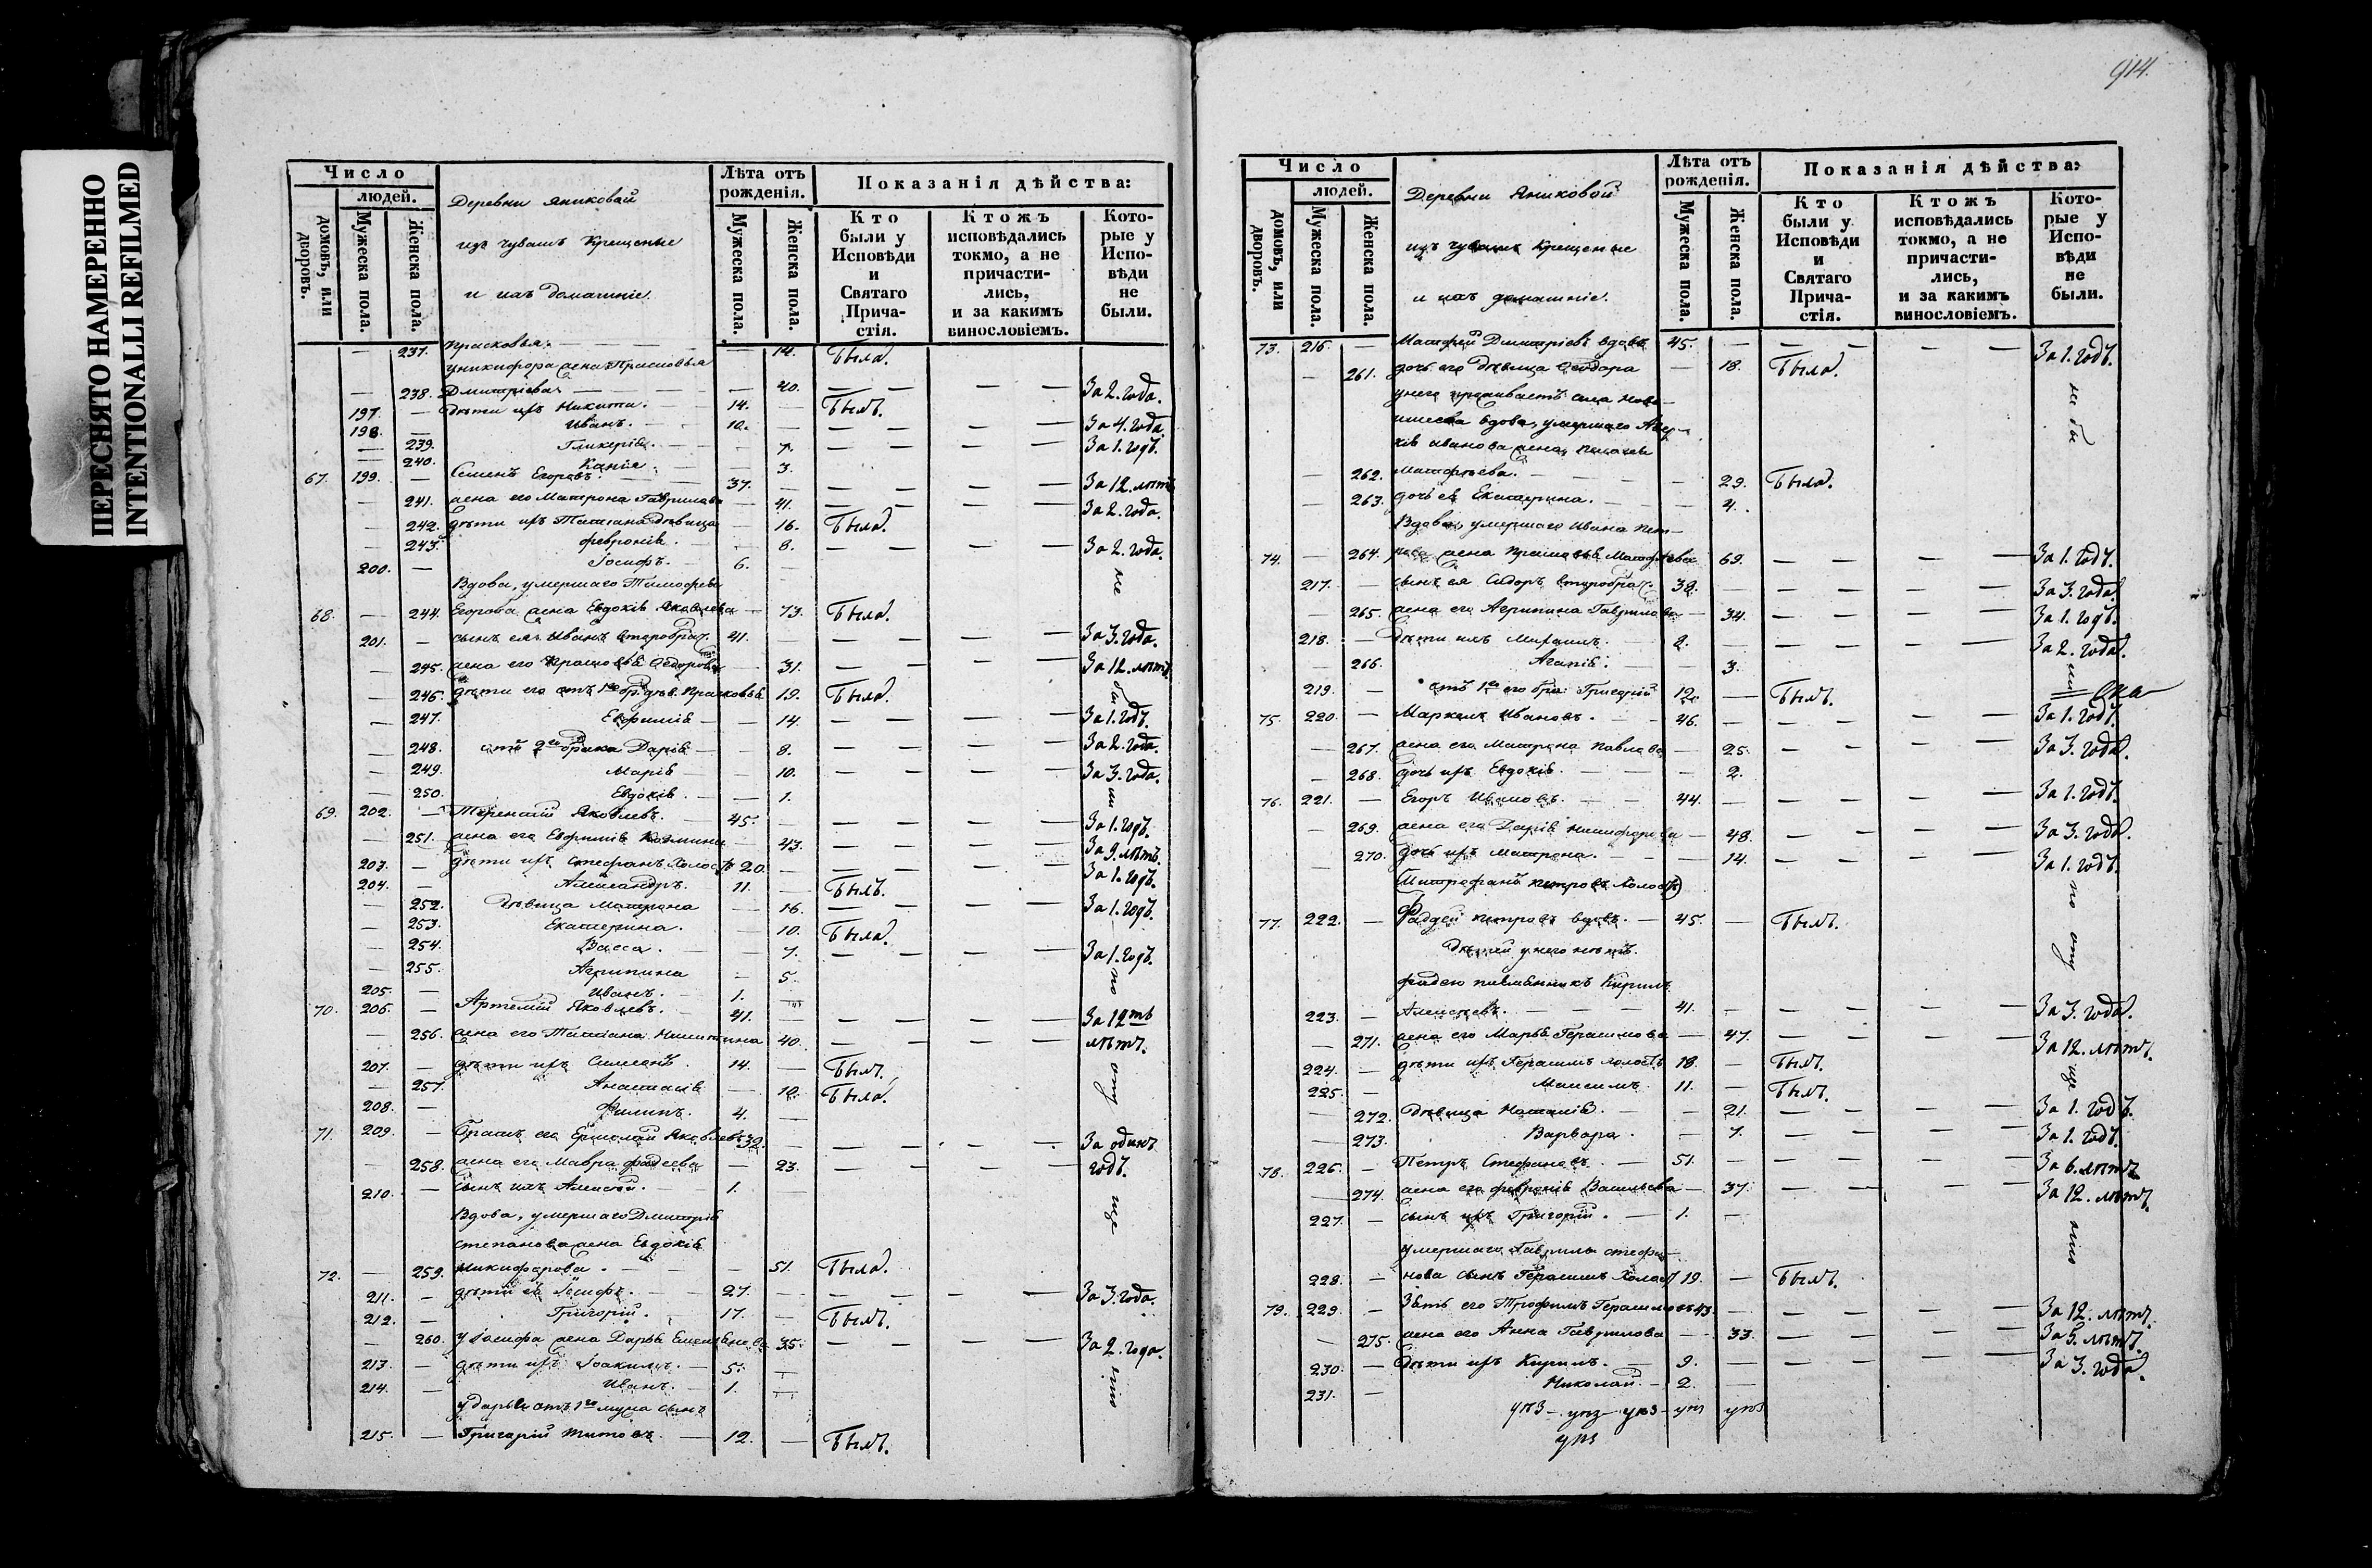 ПЕРЕСНЯТО НАМЕРЕННО
INTENTIONALLI REFILMED
Число
людей.
домовъ, или дворовъ.
Мужеска пола.
Женска пола.
Деревни Яниковой
изъ чувашъ Крещеные
и ихъ домашніе.
Лѣта отъ рожденія.
Мужеска пола.
Женска пола.
Показанія дѣйства:
Кто были у Исповѣди и Святаго Прича-стія.
Ктожъ исповѣдались токмо, а не причасти-лись, и за какимъ винословіемъ.
Кото-рые у Испо-вѣди не были.
— 237. Прасковья. — 12. Была.
уникифора жена Прасковья
— 238. Дмитріева — — 20. — — — — За 2. года.
197. — дѣти ихъ Никита. — 14. — Былъ.
198. — Иванъ. — 10. — — — — За 4. года.
— 239. Гликерія. — — 7. — — — За 1. годъ.
— 240. — 3.
67. 199. — Семенъ Егоровъ. — 37. — — — — За 12. лѣтъ
— 241. жена его Матрона Гаврилова — 41. — — — — За 2. года.
— 242. дѣти ихъ Татіана дѣвица — 16. Была.
— 243. Февронія. — 8. — — — — За 2. года.
200. — Іосифъ. — 6. —
Вдова, умершаго Тимофея
68. — 244. Егорова жена Евдокія Яковлева — 73. Была.
201. — сынъ ея Иванъ второбрач. 41. — — — — За 3. года.
— 245. жена его Прасковья Ѳедорова — 31. — — — — За 12. лѣтъ
— 246. дѣти его отъ 1го бр: дѣв. Прасковья 19. Была.
— 247. Евфимія — — 14. — — — — За 1. годъ.
— 248. отъ 2го брака Дарія — — 8. — — — — За 2. года.
— 249. Марія — — 10. — — — — За 3. года.
— 250. Евдокія. — — 1.
69. 202. — Терентій Яковлевъ. — 45. — — — — За 1. годъ.
— 251. жена его Евфимія Козмина — 43. — — — — За 9. лѣтъ.
203. — дѣти ихъ Стефанъ холостъ 20. — — — — За 1. годъ.
204. — Александръ. 11. — Былъ.
— 252. дѣвица Матрона — 16. — — — — За 1. годъ.
— 253. Екатерина. — 10. Была.
— 254. Васса. — — 7. — — — — За 1. годъ.
— 255. Агрипина — 5.
205. — Иванъ. — 1. —
70. 206. — Артемій Яковлевъ. — 41. — — — — За 12ть
— 256. жена его Татіана Никитина 40. — — — — лѣтъ.
207. — дѣти ихъ Симеонъ. 14. — Былъ.
— 257. Анастасія — 10. Была.
208. — Филипъ. 4. —
71. 209. — Братъ его Ермолай Яковлевъ 32. — — — — За одинъ
— 258. жена его Мавра Фадеева — 23. — — — — годъ.
210. — сынъ ихъ Алексѣй. — 1. —
Вдова, умершаго Дмитрія
степанова жена Евдокія
72. — 259. Никифорова. — — 51. Была.
211. — дѣти ея Іосифъ. — 27. — — — — За 3. года.
212. — Григорій. — 17. — Былъ.
— 260. у Іосифа жена Дарья Емельянова 35. — — — — За 2. года.
213. — дѣти ихъ Іоакимъ. — 5. —
214. — Иванъ. — 1. —
у дарьи отъ 1го мужа сынъ
215. — Григорій Титовъ. — 12. — Былъ.
914.
Число
людей.
домовъ, или дворовъ.
Мужеска пола.
Женска пола.
Деревни Яниковой
изъ чувашъ Крещеные
и ихъ домашніе.
Лѣта отъ рожденія.
Мужеска пола.
Женска пола.
Показанія дѣйства:
Кто были у Исповѣди и Святаго Прича-стія.
Ктожъ исповѣдались токмо, а не причасти-лись, и за какимъ винословіемъ.
Кото-рые у Испо-вѣди не были.
73. 216. — Матфей Дмитріевъ вдовъ 45. — — — — За 1. годъ.
— 261. дочь его дѣвица Ѳеодора — 18. Была.
у него проживаетъ
вдова, умершаго
Иванова жена
— 262. Матфѣева. — — 29. Была.
— 263. дочь ея Екатерина. — — 4.
Вдова, умершаго Ивана Пет-
74. — 264. рова жена Прасковья Матфѣева 69. — — — За 1. годъ.
217. — сынъ ея Сидоръ второбрач. 38. — — — — За 3. года.
— 265. жена его Агрипина Гаврилова — 34. — — — — За 1. годъ.
218. — дѣти ихъ Михаилъ. — 8. — — — — За 2. года.
— 266. Агапія. — — 3.
219. — отъ 1го его бра: Григорій 12. — Былъ.
75. 220. — Маркелъ Ивановъ. — 46. — — — — За 1. годъ.
— 267. жена его Матрона Павлова — 25. — — — — За 3. года.
— 268. дочь ихъ Евдокія. — — 2.
76. 221. — Егоръ Ивановъ. — 44. — — — — За 1. годъ.
— 269. жена его Дарія Никифорова — 48. — — — — За 3. года.
— 270. дочь ихъ Матрона. — — 14. — — — — За 1. годъ.
(Митрофанъ Петровъ холостъ)
77. 222. — Фаддей Петровъ вдовъ. — 45. — Былъ.
дѣтей у него нѣтъ.
Фадею племянникъ Кирилъ
223. — Алексѣевъ. — 41. — — — — За 3. года.
— 271. жена его Марья Герасимова — 47. — — — — За 12. лѣтъ.
224. — дѣти ихъ Герасимъ холостъ 18. — Былъ.
225. — Максимъ. 11. — Былъ.
— 272. Дѣвица Наталія. — — 21. — — — — За 1. годъ.
— 273. Варвара. — — 7. — — — — За 1. годъ.
78. 226. — Петръ Стефановъ. — 51. — — — — За 6. лѣтъ
— 274. жена его Февронія Васильева — 37. — — — — За 12. лѣтъ.
227. — сынъ ихъ Григорій. — 1. —
умершаго Гаврилы стефа-
228. — нова сынъ Герасимъ Холост 19. — Былъ.
79. 229. — Зять его Трофимъ Герасимовъ 43. — — — — За 12. лѣтъ.
— 275. жена его Анна Гаврилова — 33. — — — — За 5. лѣтъ.
230. — Дѣти ихъ Кирилъ. — 9. — — — — За 3. года.
231. — Николай. — 2. —